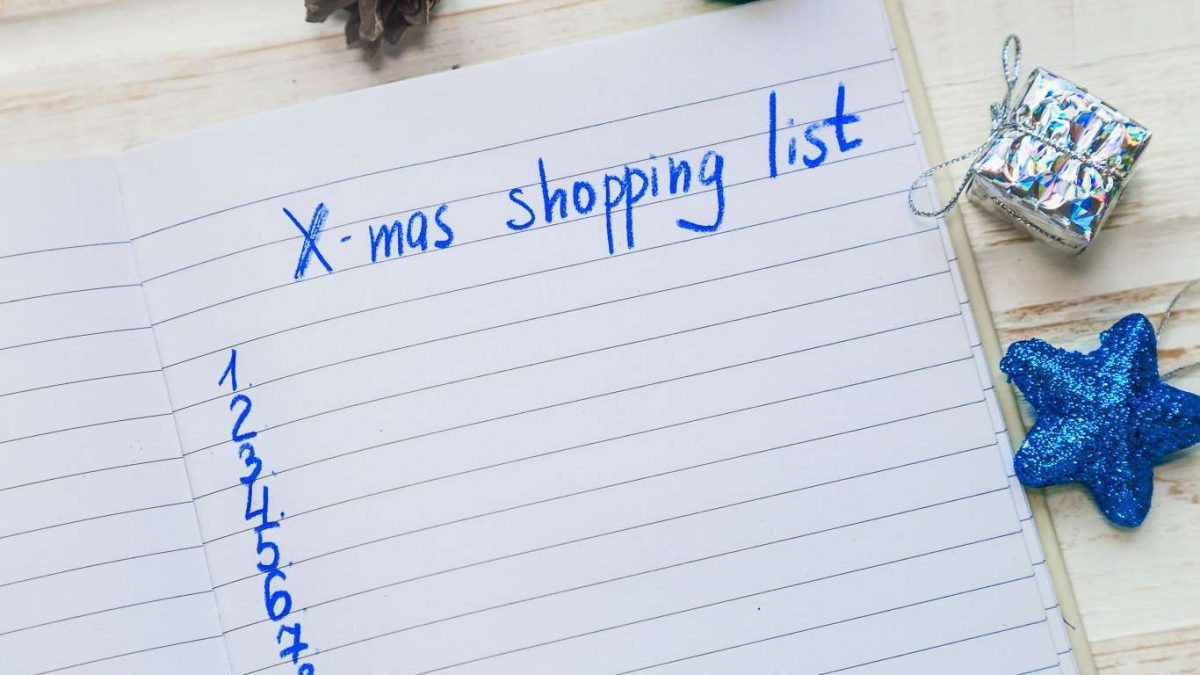 X-mas shopping list
1.
2.
3.
4.
5.
6.
7.